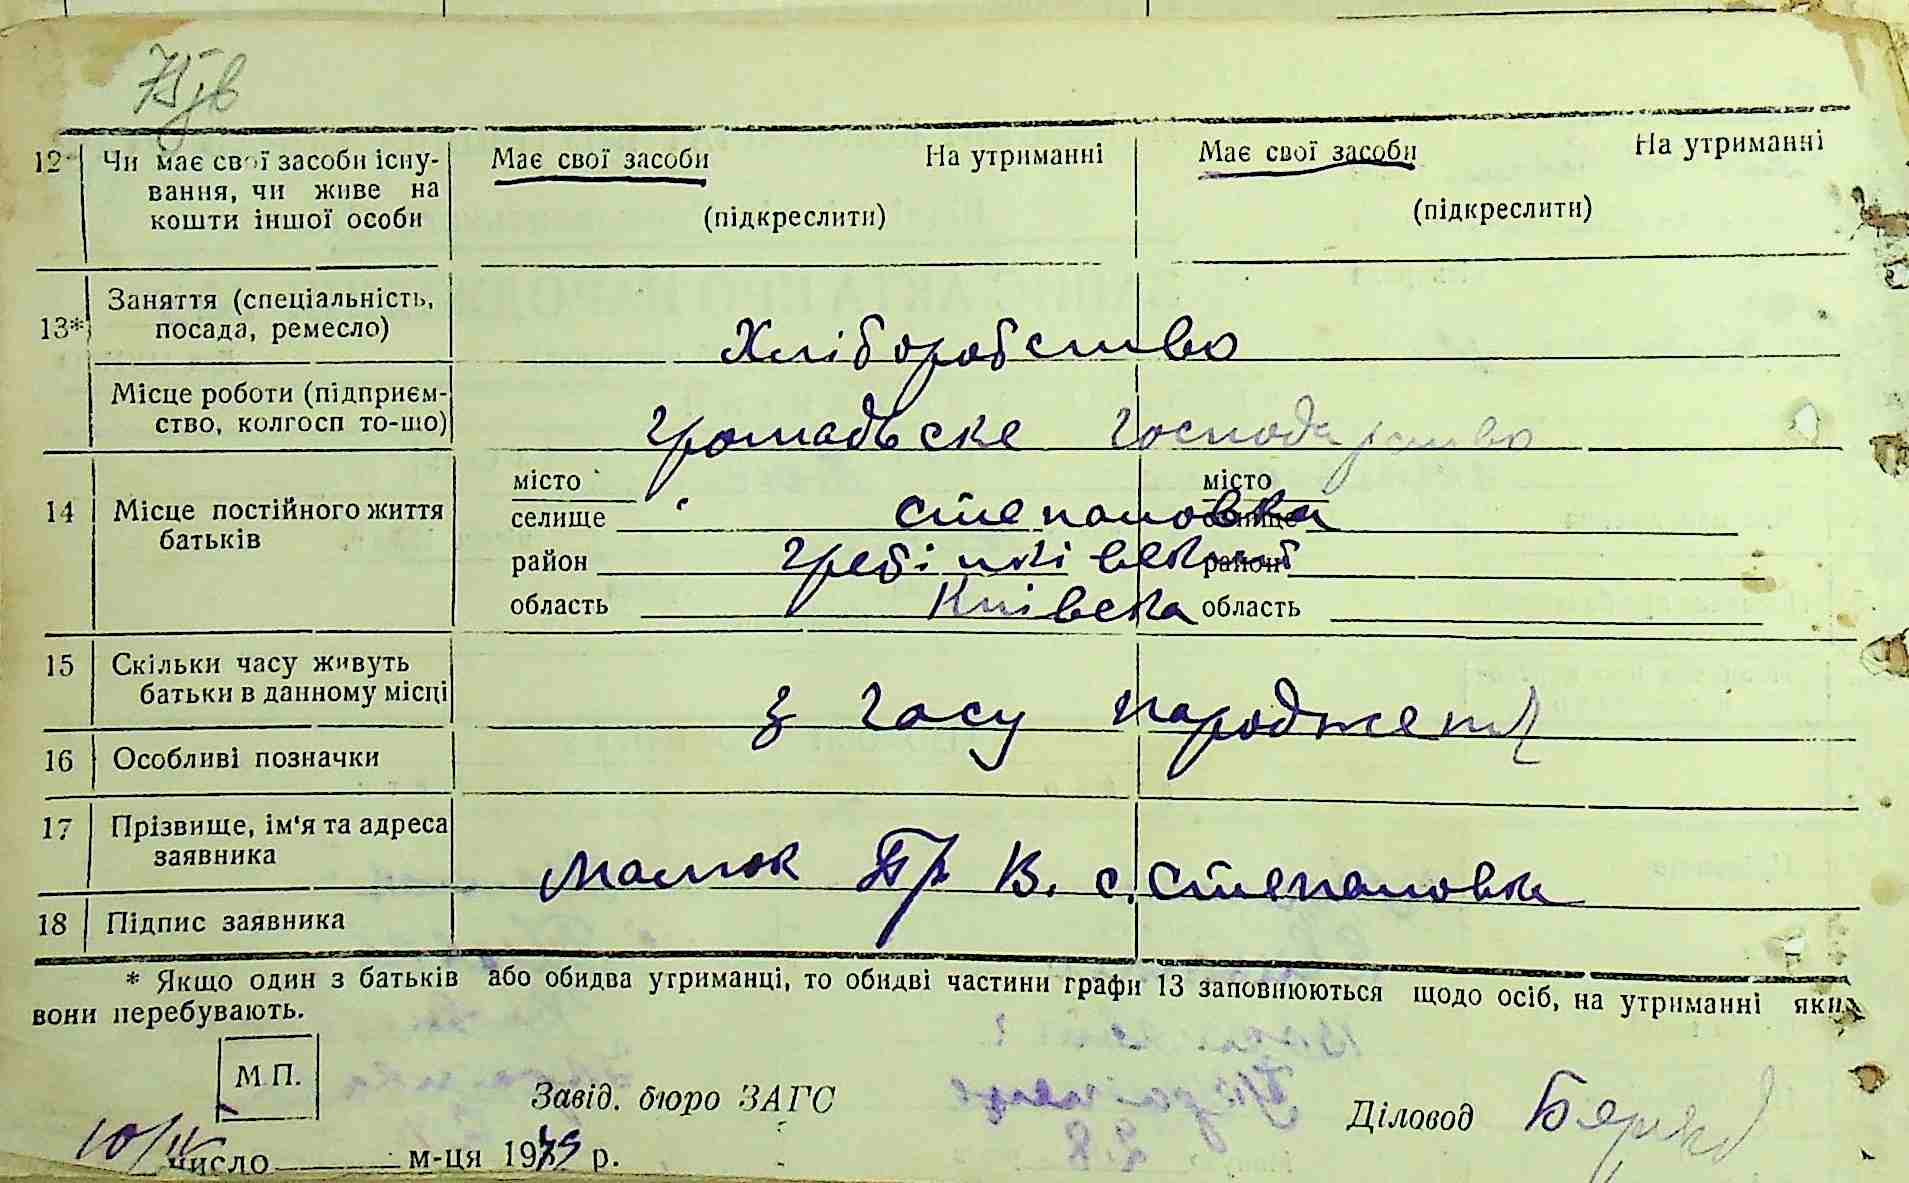 12 Чи має свої засоби існу- Має свої засоби На утриманні Має свої засоби На утриманні
вання, чи живе на
кошти іншої особи (підкреслити) (підкреслити)
Заняття (спеціальність,
13* посада, ремесло) Хліборобство
Місце роботи (підприєм-
ство, колгосп то-що) Громадьске господарство
місто місто
14 Місце постійного життя селище Степановка селище
батьків район Гребінківський район
область Київска область
15 Скільки часу живуть
батьки в данному місці з часу народження
16 Особливі позначки
17 Прізвище, ім'я та адреса
заявника В. с. Степановка
18 Підпис заявника
* Якщо один з батьків або обидва утриманці, то обидві частини графи 13 заповнюються щодо осіб, на утриманні яких
вони перебувають.
М.П.
Завід. бюро ЗАГС Діловод
10/ число м-ця 19 р.